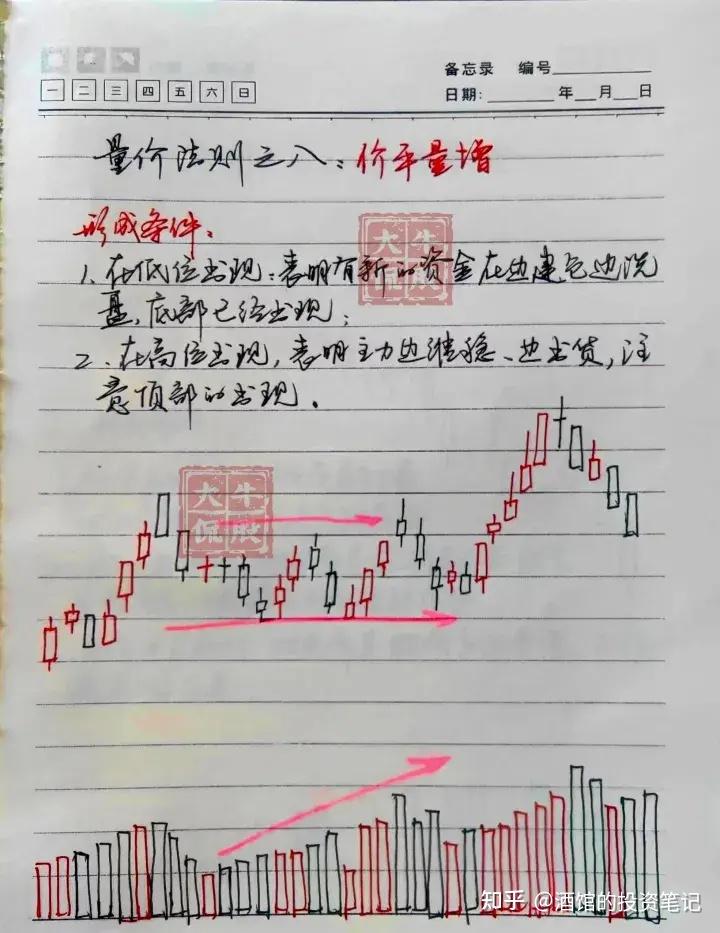 备忘录 编号
一 二 三 四 五 六 日
日期: 年 月 日
量价法则之八：价平量增
形成条件：
1、在低位出现：表明有新的资金在边建仓边洗
盘，底部已经出现；
2、在高位出现，表明主力边维稳、边出货，注
意顶部的出现。
大牛
侃股
大牛
侃股
知乎 @酒馆的投资笔记